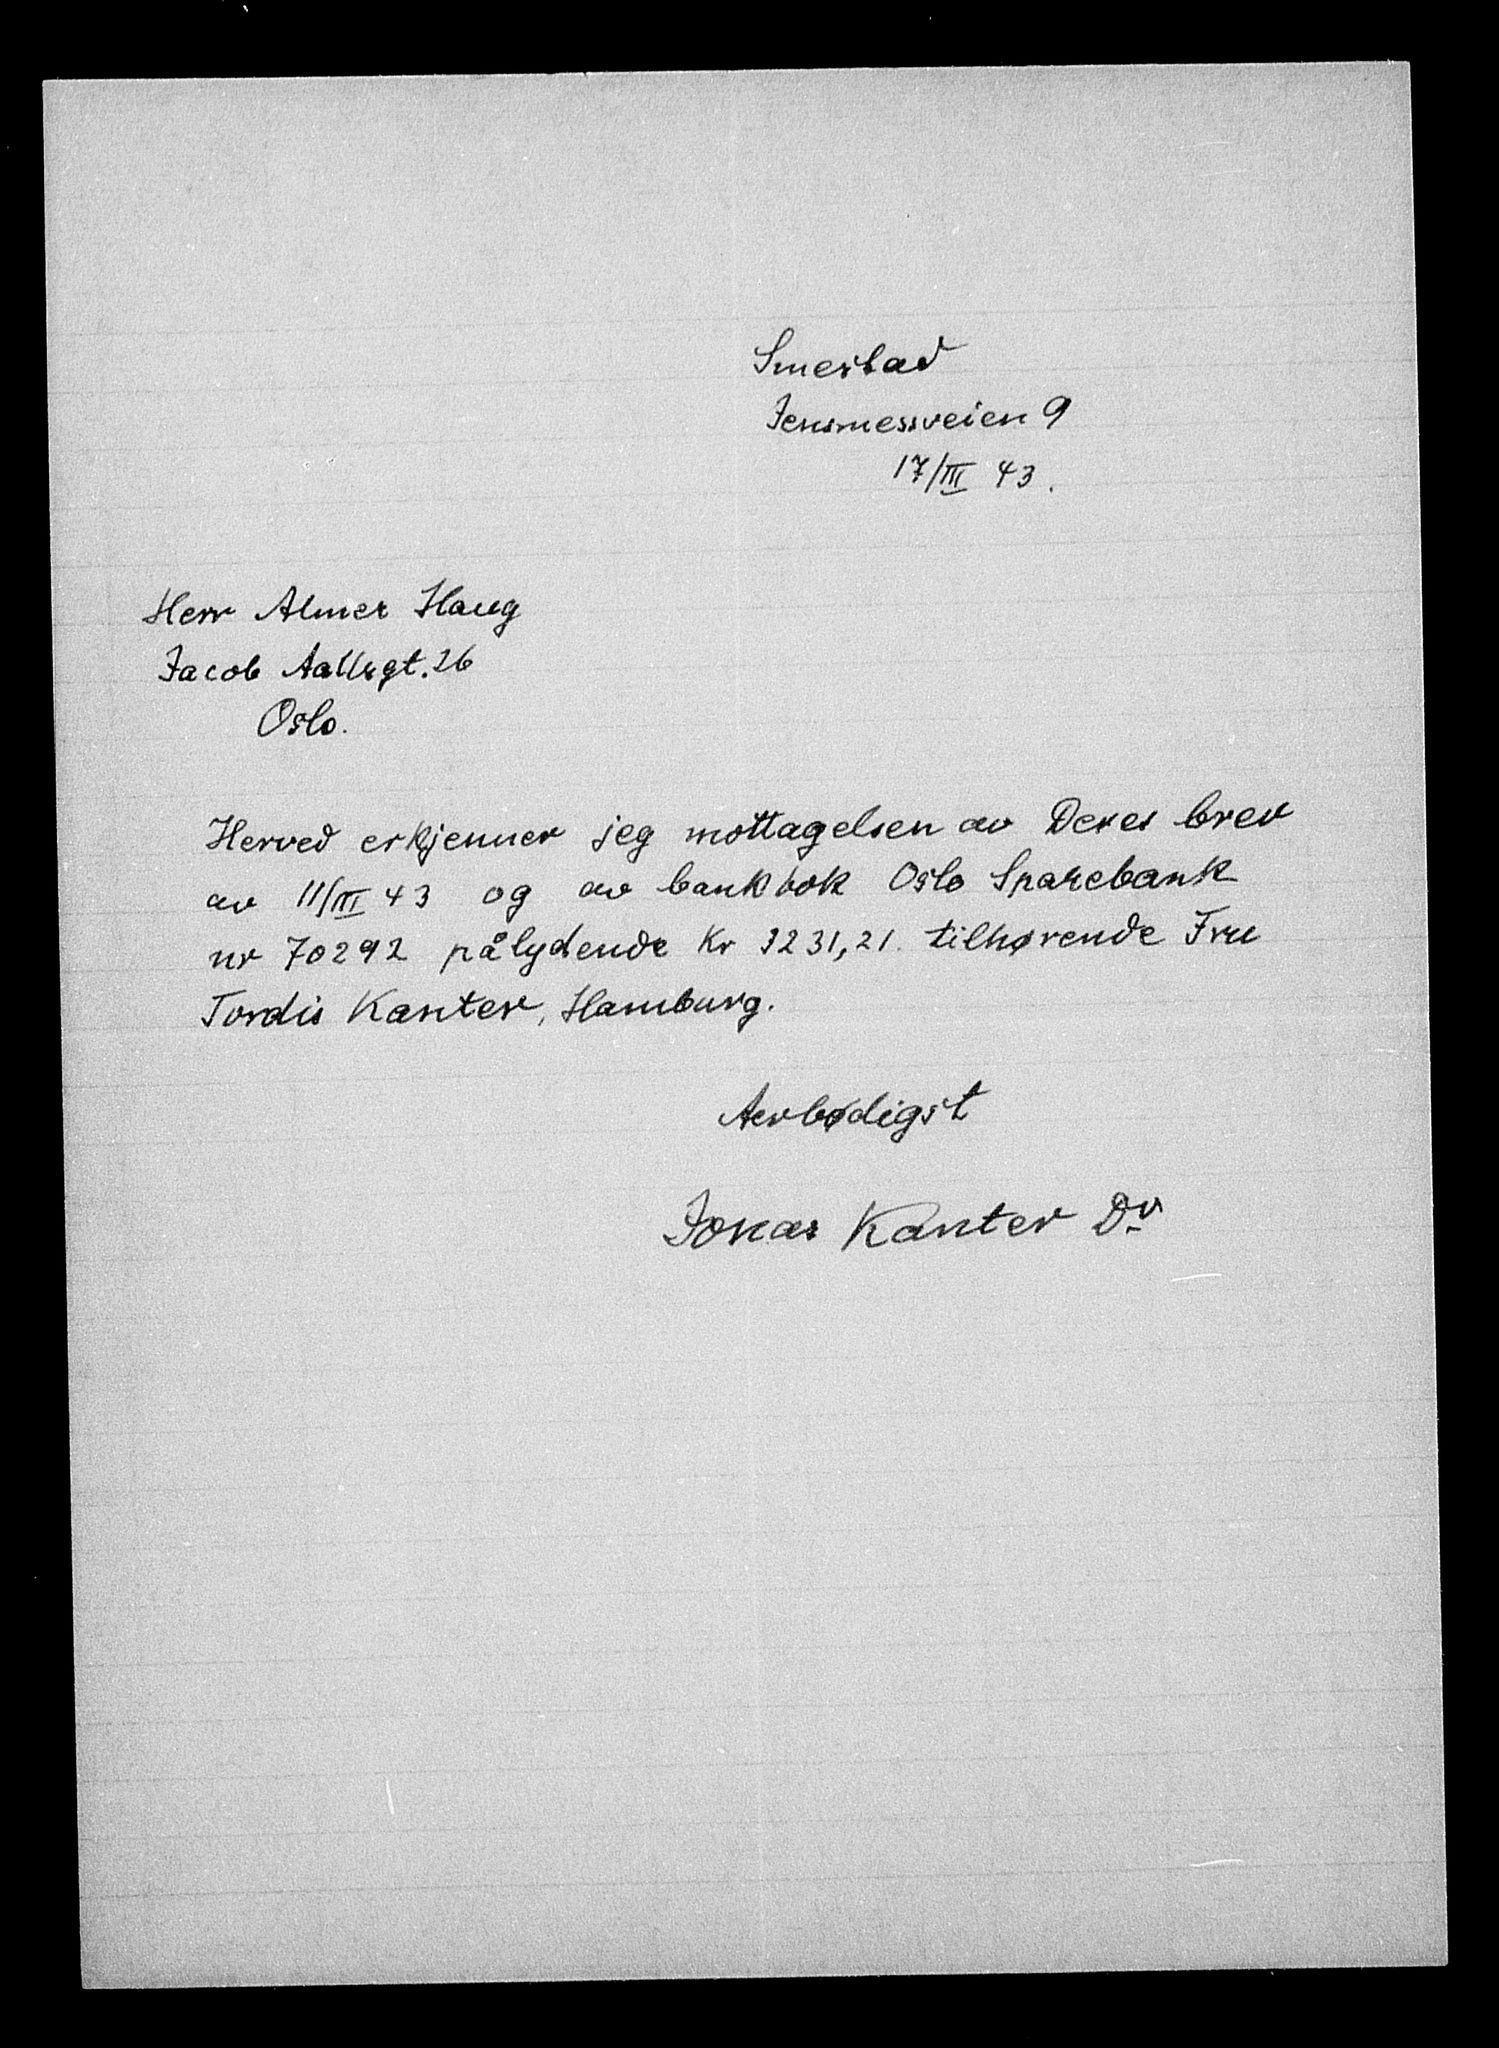 Smestad
Jensmessveien 9
17/III 43.
Herr Almer Haug
Jacob Aallsgt. 26
Oslo.
Herved erkjenner jeg mottagelsen av Deres brev
av 11/III 43 og av bankbok Oslo Sparebank
nr 70292 pålydende Kr 3231,21. tilhørende Fru
Tordis Kanter, Hamburg.
Aerbødigst
Jonas Kanter Dr